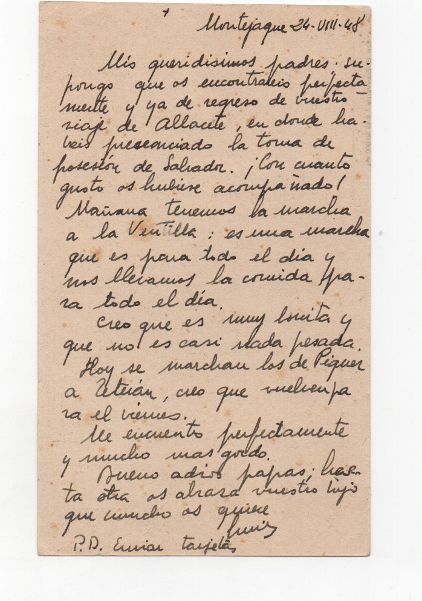 +
Montejaque 24-VIII-48
Mis queridisimos padres: su-
pongo que os encontrareis perfecta
mente y ya de regreso de vuestro
viaje de Albacete, en donde ha-
beis presenciado la toma de
posesión de Salvador. ¡Con cuanto
gusto os hubiese acompañado!
Mañana tenemos la marcha
a la Ventilla: es una marcha
que es para todo el día y
nos llevamos la comida pa-
ra todo el día.
Creo que es muy bonita y
que no es casi nada pesada.
Hoy se marchan los de Piquer
a, creo que vuelven pa
ra el viernes.
Me encuento perfectamente
y mucho mas gordo.
Bueno adios papas; has-
ta otra os abraza vuestro hijo
que mucho os quiere
Luis
P.D. Enviar tarjetas